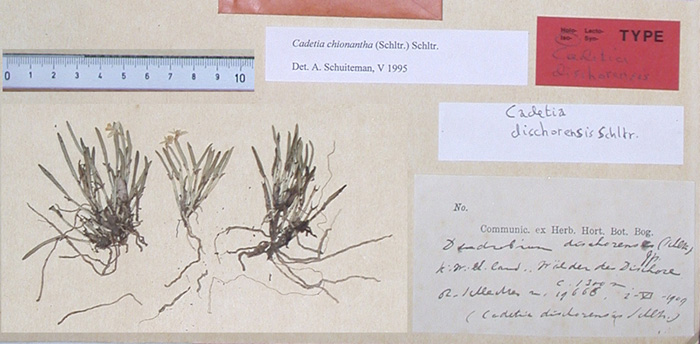 Cadetia chionantha (Schltr.) Schltr.
Det. A. Schuiteman, V 1995
Holo- Lecto-
Iso- Syn-
TYPE
Cadetia
dischorensis
0 1 2 3 4 5 6 7 8 9 10
Cadetia
dischorensis Schltr.
No.
Communic. ex Herb. Hort. Bot. Bog.
Dendrobium dischorense (Schltr.)
Wälder des Dischore
c. 1200 m
R. Schlechter n. 19668. 2-VI-1909
(Cadetia dischorensis Schltr.)